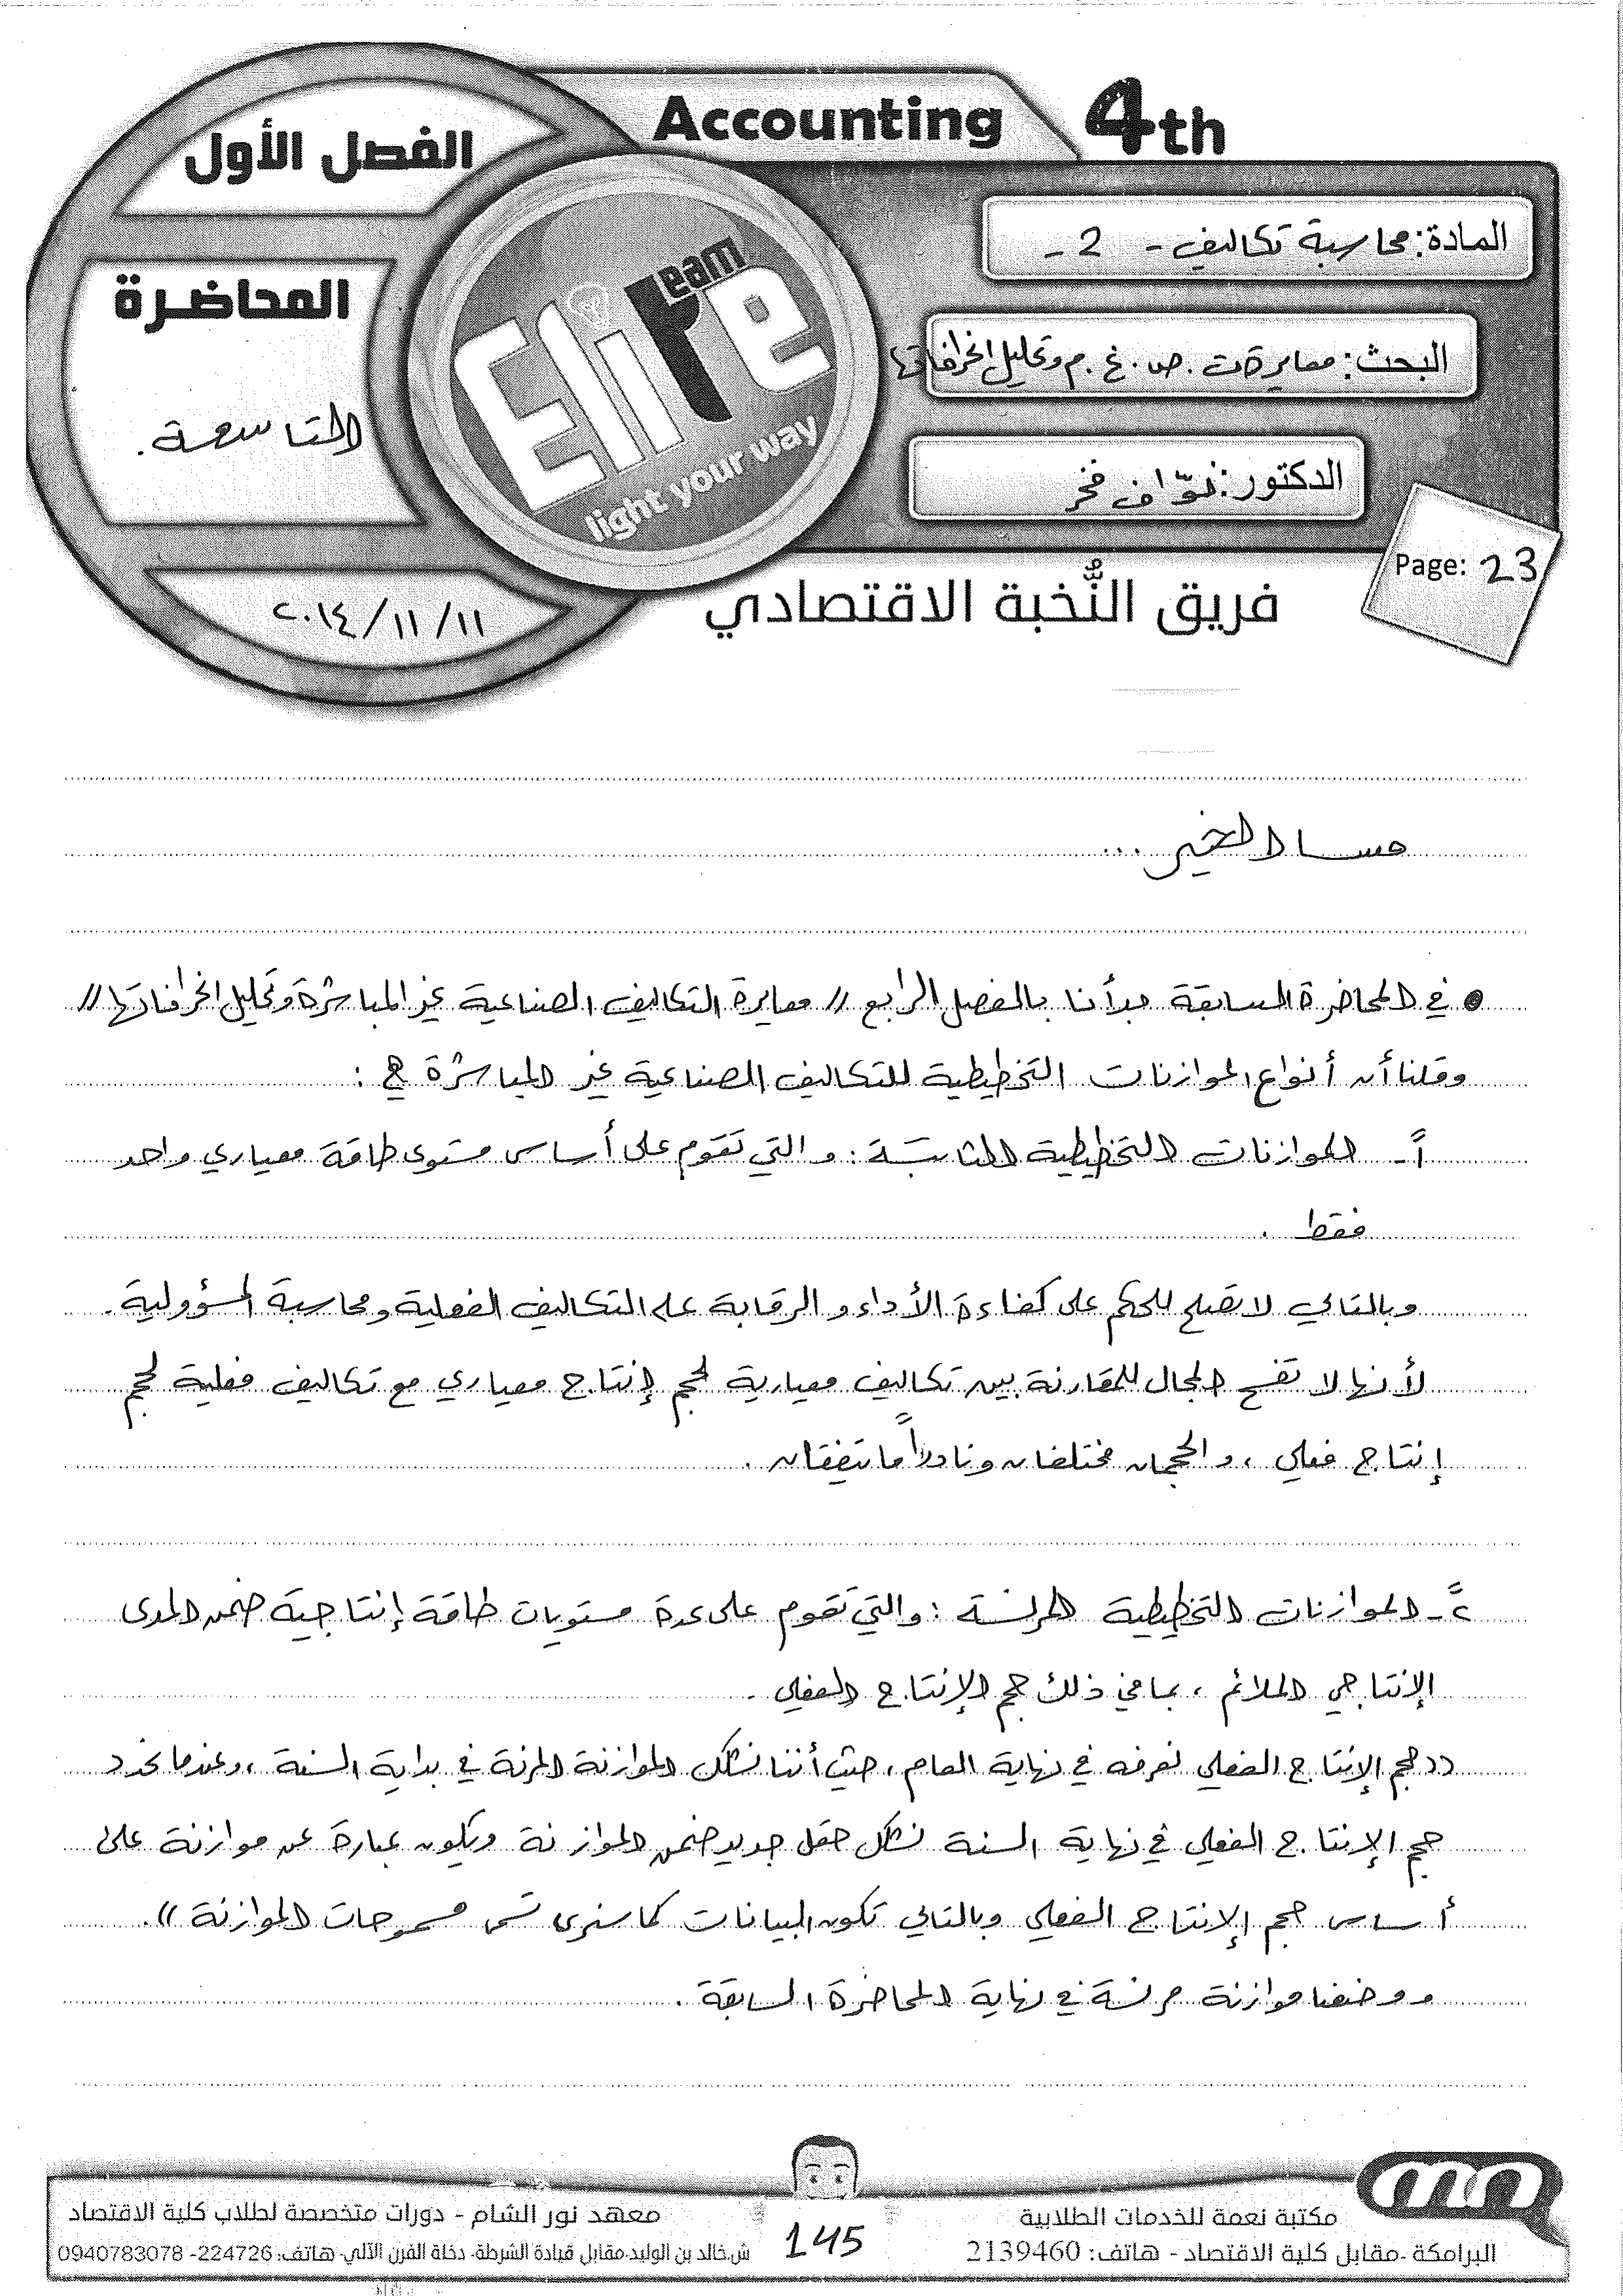 Accounting 4th
الفصل الأول
المادة: محاسبة تكاليف - 2 -
المحاضرة
التاسعة.
البحث: معايرة ت.ص.غ.م وتحليل انحرافاتها
الدكتور: نوّاف فخر
Elite Team
light your way
Page: 23
٢٠١٤/١١/١١
فريق النُّخبة الاقتصادي
مساء الخير ...
• في المحاضرة السابقة بدأنا بالفصل الرابع // معايرة التكاليف الصناعية غير المباشرة وتحليل انحرافاتها //
وقلنا أن أنواع الموازنات التخطيطية للتكاليف الصناعية غير المباشرة هي :
١ً- الموازنات التخطيطية الثابتة : والتي تقوم على أساس مستوى طاقة معياري واحد
فقط .
وبالتالي لا تصلح للحكم على كفاءة الأداء والرقابة على التكاليف الفعلية ومحاسبة المسؤولية .
لأنها لا تفسح المجال للمقارنة بين تكاليف معيارية لحجم إنتاج معياري مع تكاليف فعلية لحجم
إنتاج فعلي ، والحجمان مختلفان ونادراً ما يتفقان .
٢ً- الموازنات التخطيطية المرنة : والتي تقوم على عدة مستويات طاقة إنتاجية ضمن المدى
الإنتاجي الملائم ، بما في ذلك حجم الإنتاج الفعلي .
(( حجم الإنتاج الفعلي نعرفه في نهاية العام ، حيث أننا نشكل الموازنة المرنة في بداية السنة ، وعندما نحدد
حجم الإنتاج الفعلي في نهاية السنة نشكل حقل جديد ضمن الموازنة ويكون عبارة عن موازنة على
أساس حجم الإنتاج الفعلي وبالتالي تكون البيانات كما سنرى تسمى مسموحات الموازنة )) .
ووضعنا موازنة مرنة في نهاية المحاضرة السابقة .
مكتبة نعمة للخدمات الطلابية
البرامكة - مقابل كلية الاقتصاد - هاتف: 2139460
145
معهد نور الشام - دورات متخصصة لطلاب كلية الاقتصاد
ش.خالد بن الوليد-مقابل قيادة الشرطة- دخلة الفرن الآلي- هاتف: 224726- 0940783078